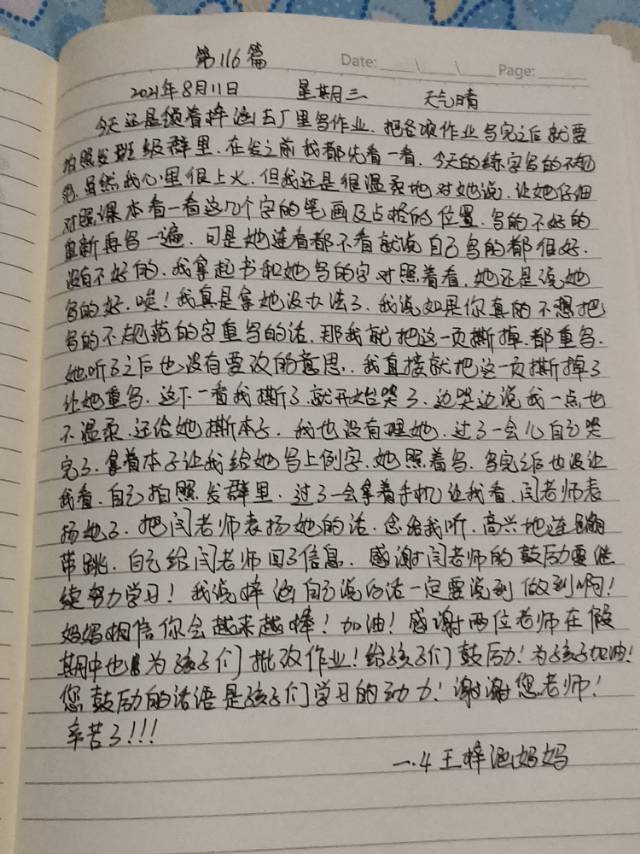 第116篇
Date: Page:
2021年8月11日 星期三 天气晴
今天还是领着梓涵去厂里写作业．把各项作业写完之后就要
拍照发班级群里．在发之前我都先看一看．今天的练字写的不规
范．虽然我心里很上火．但我还是很温柔地对她说．让她仔细
对照课本看一看这几个字的笔画及占格的位置．写的不好的
重新再写一遍．可是她连看都不看就说自己写的都很好．
没有不好的．我拿起书和她写的字对照着看．她还是说她
写的好．唉！我真是拿她没办法了．我说如果你真的不想把
写的不规范的字重写的话．那我就把这一页撕掉．都重写．
她听了之后也没有要改的意思．．我直接就把这一页撕掉了
让她重写．这下一看我撕了．就开始哭了．边哭边说我一点也
不温柔．还给她撕本子．我也没有理她．过了一会儿自己哭
完了．拿着本子让我给她写上例字．她照着写．写完之后也没让
我看．自己拍照发群里．过了一会拿着手机让我看．闫老师表
扬她了．把闫老师表扬她的话．念给我听．高兴地连蹦
带跳．自己给闫老师回了信息．感谢闫老师的鼓励要继
续努力学习！我说梓涵自己说的话一定要说到做到啊！
妈妈相信你会越来越棒！加油！感谢两位老师在假
期中也为孩子们批改作业！给孩子们鼓励！为孩子加油！
您鼓励的话语是孩子们学习的动力！谢谢您老师！
辛苦了！！！
一.4 王梓涵妈妈